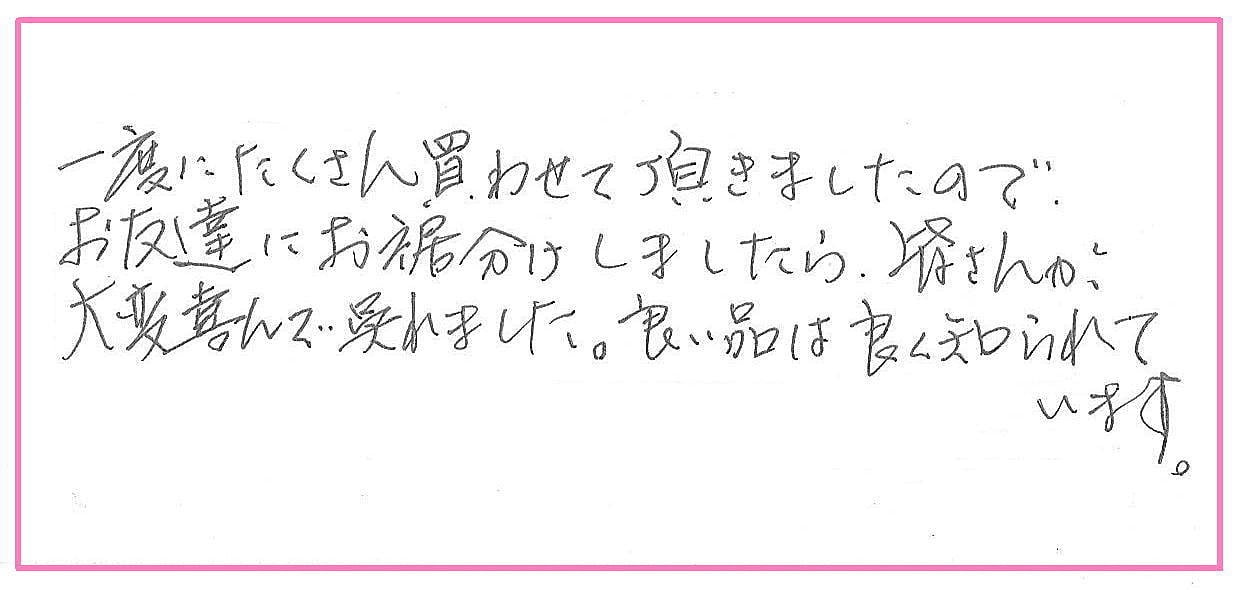 一度にたくさん買わせて頂きましたので.
お友達にお裾分けしましたら.皆さんが
大変喜んで呉れました。良い品は良く知られて
います。